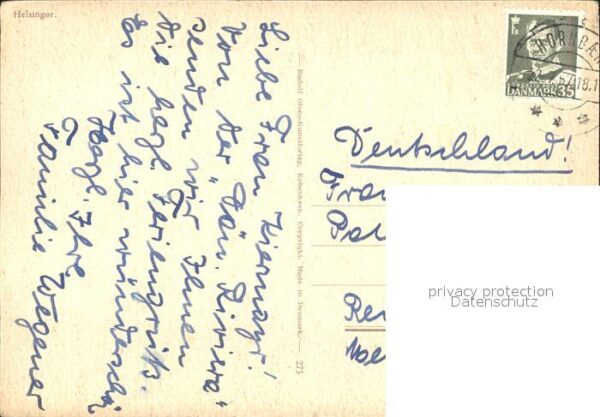 Helsingør.
Liebe Frau Kiermayr!
Von der „Dän. Riviera"
senden wir Ihnen
die herzl. Feriengrüße.
Es ist hier wunderschön
Herzl. Ihre
Familie Wegener
— Rudolf Olsens Kunstforlag, København. Copyright. Made in Denmark.— 273
HORNBÆK
DANMARK 35
Deutschland!
Frau
privacy protection
Datenschutz